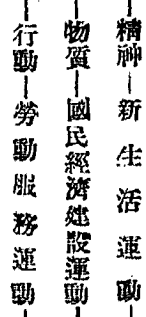 精神—新生活運動—
物質—國民經濟建設運動—
行動—勞動服務運動—